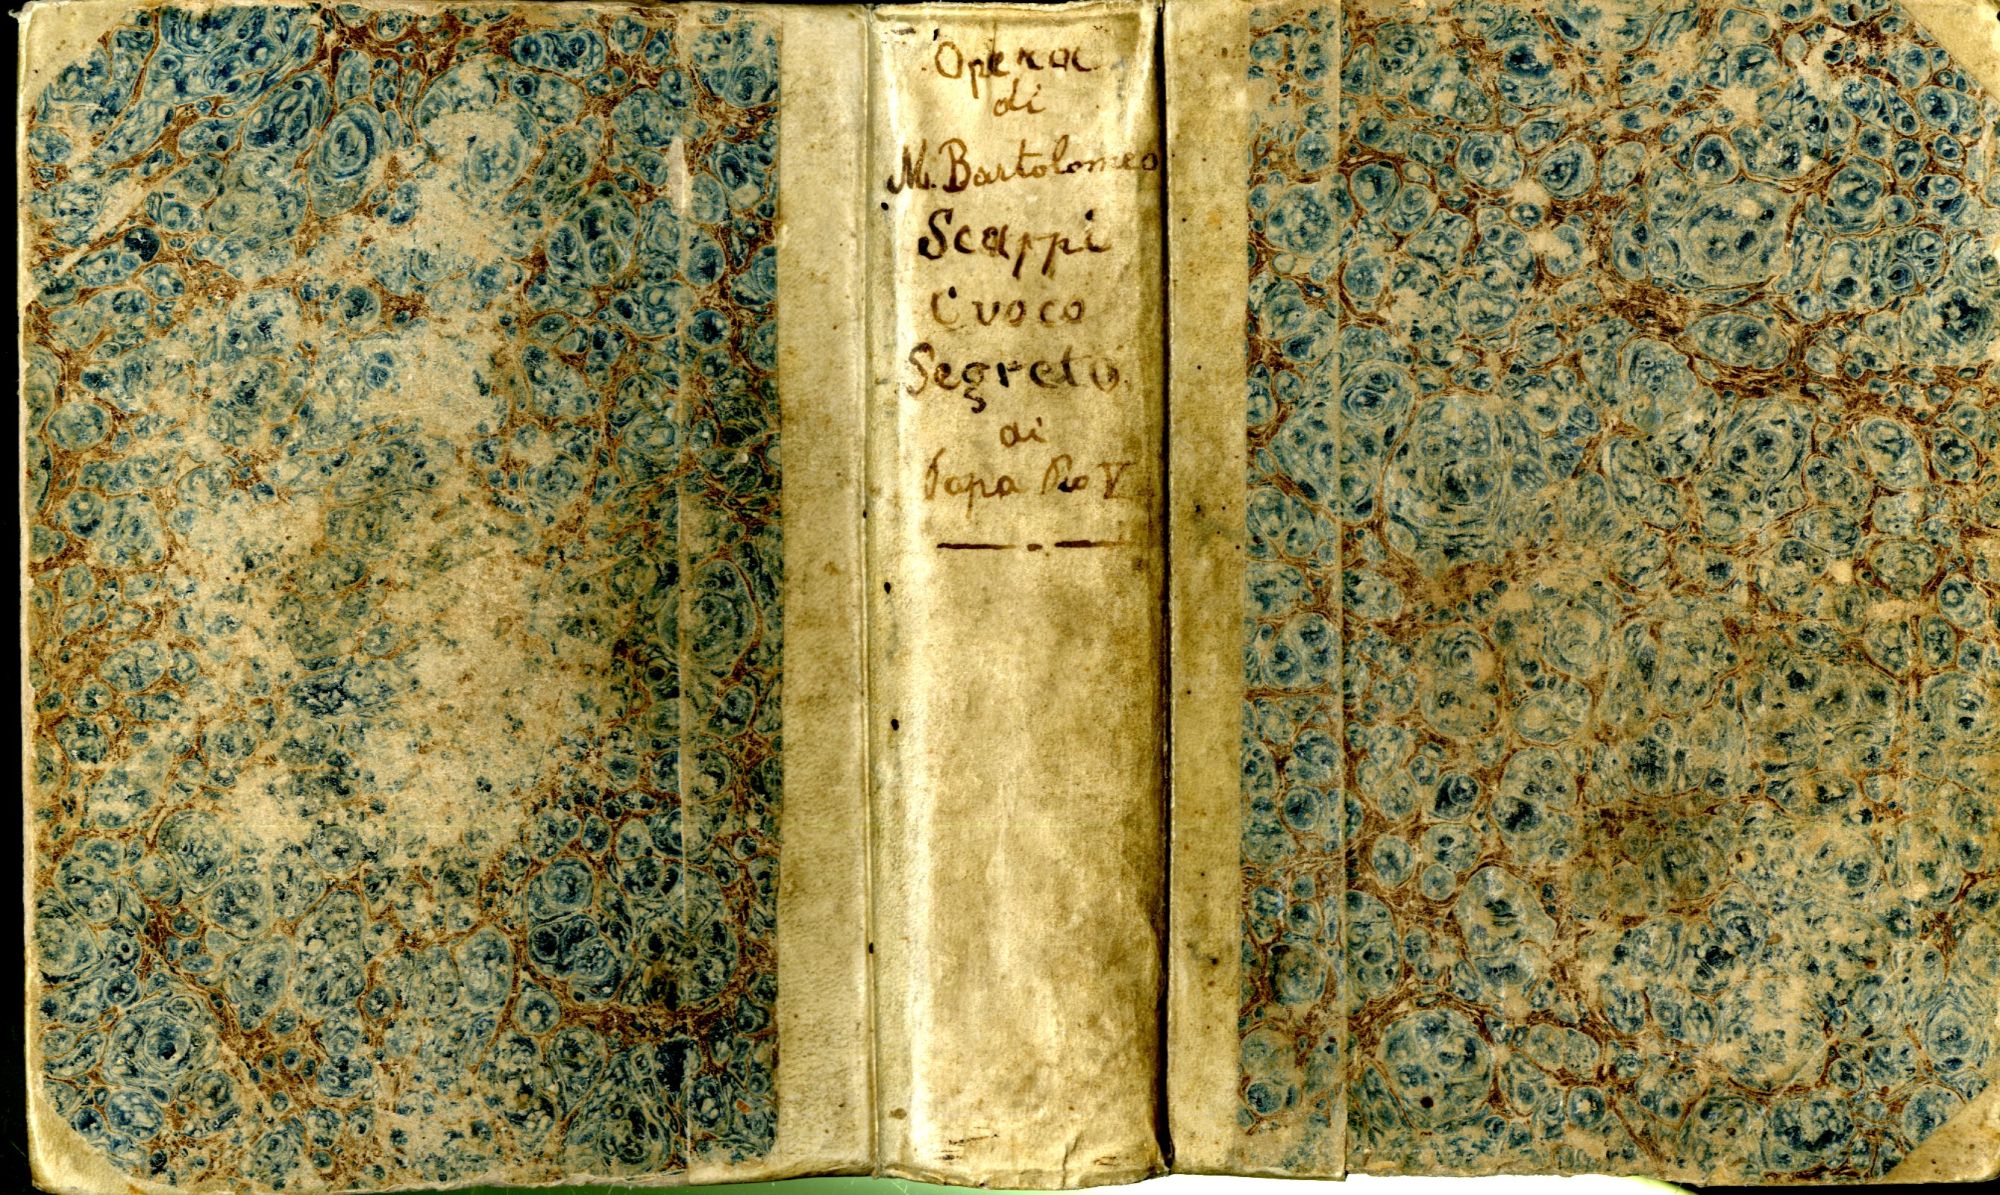 Opera
di
M. Bartolomeo
Scappi
Cuoco
Segreto
di
Papa Pio V